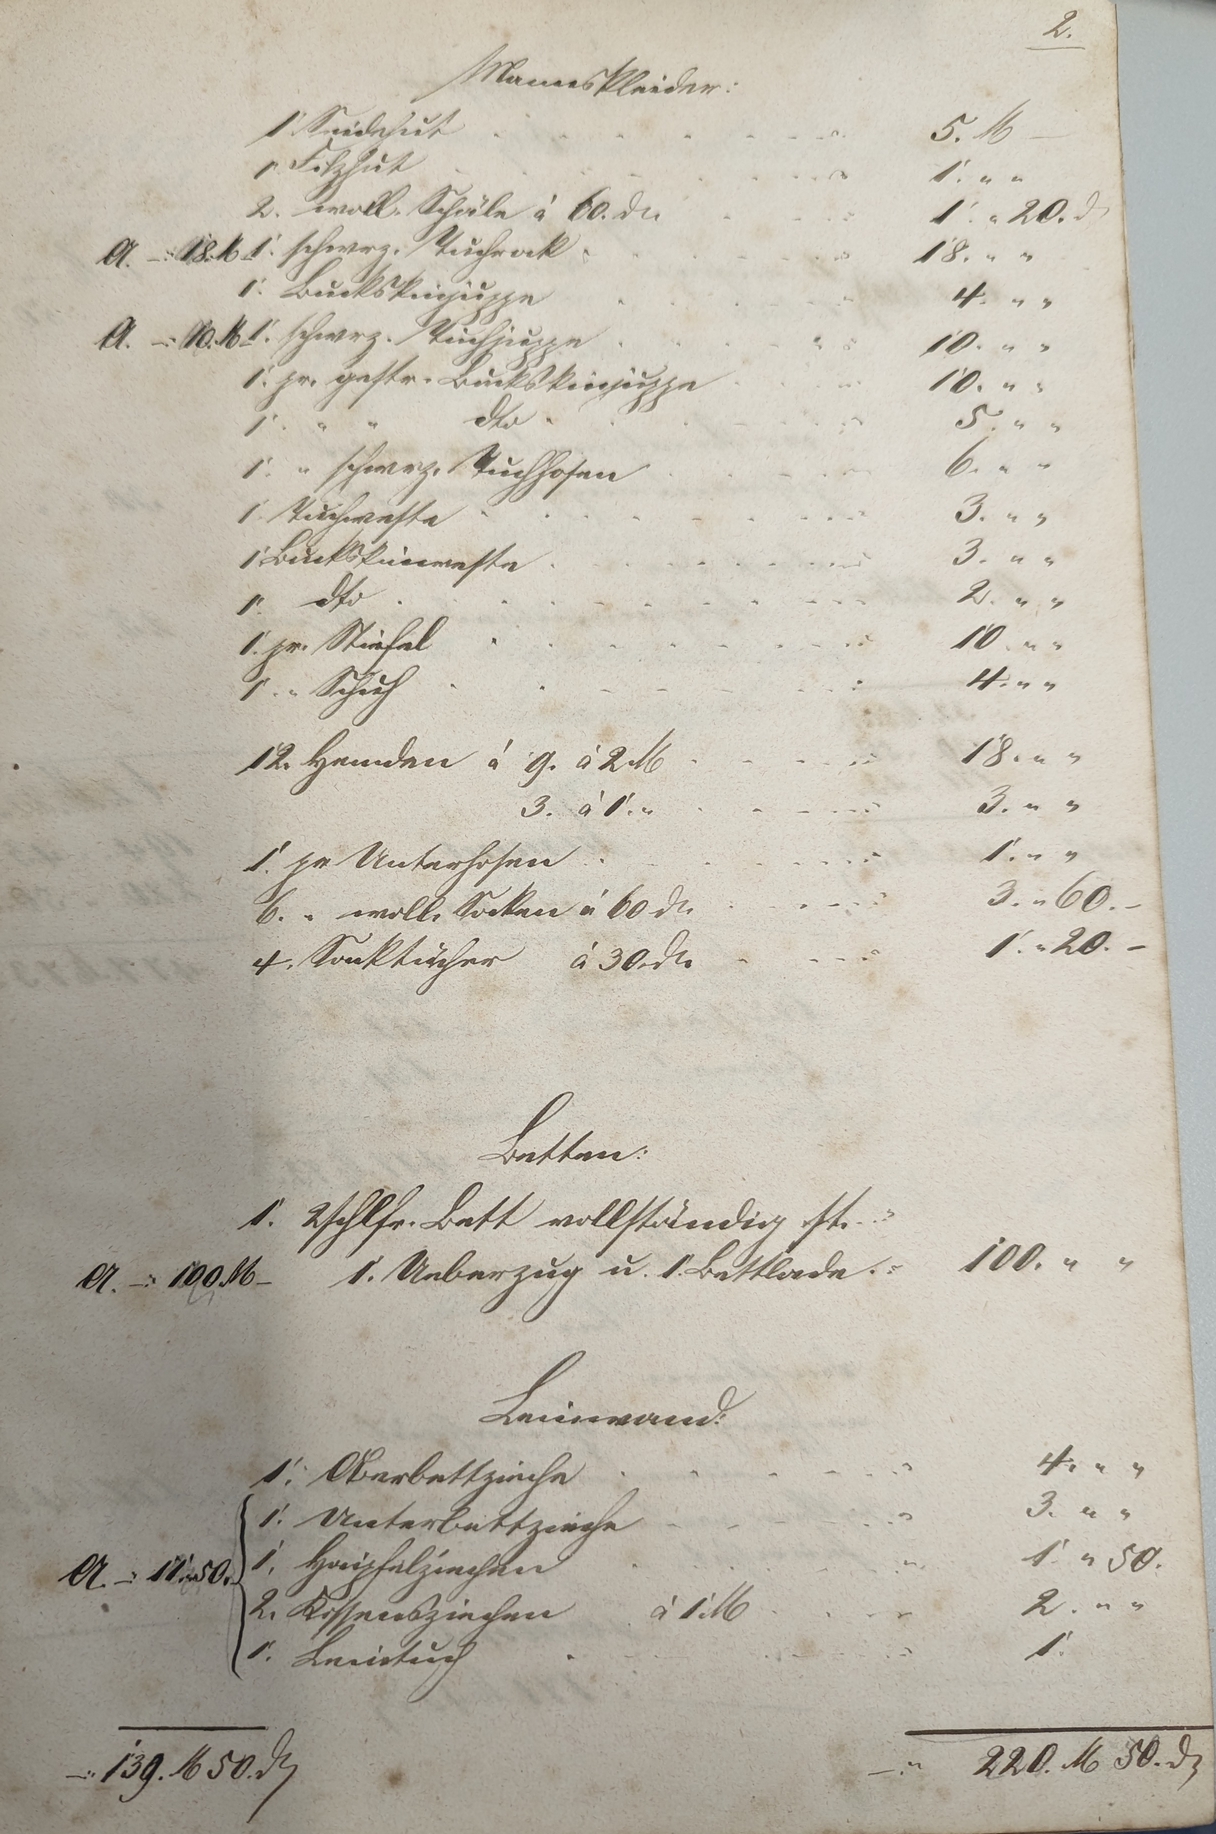 2.
Mannskleider:
1 Seidehut 5. M —
1 Filzhut 1. " "
2. woll. Schäle à 60. dn. 1. " 20. d
A. —: 18. M 1. schwrz. Tuchrock 18. " "
1. Buckskinjuppe 4. " "
A. —: 10. M 1. schwrz. Tuchjuppe 10. " "
1. pr. gestr. Buckskinjuppe 10. " "
1. " " dto 5. " "
1. " schwrz. Tuchhosen 6. " "
1. Tuchweste 3. " "
1 Buckskinweste 3. " "
1. dto 2. " "
1. pr. Stiefel 10. " "
1. " Schuh 4. " "
12. Hemden à 9. à 2 M 18. " "
3. à 1. " 3. " "
1. pr Unterhosen 1. " "
6. " woll. Socken à 60 dn. 3. " 60. —
4. Sacktücher à 30. dn. 1. " 20. —
Betten:
1. 2schlfr. Bett vollständig st.
A. —: 100. M — 1. Ueberzug u. 1. Bettlade 100. " "
Leinwand:
1. Oberbettzieche 4. " "
1. Unterbettzieche 3. " "
A. —: 11. " 50. 1. Haipfelziechen 1. " 50.
2. Kissensziechen à 1. M 2. " "
1. Leintuch 1.
—: 139. M 50. d —: 220. M 50. d